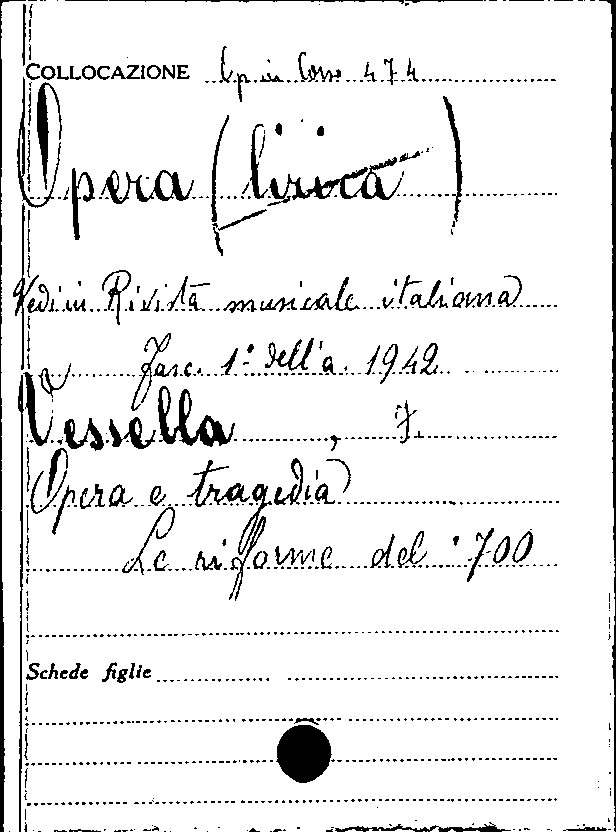 COLLOCAZIONE Op in Corso 474
Opera (lirica)
Vedi in Rivista musicale italiana
Fasc. 1° dell'a. 1942
Vessella, F.
Opera e tragedia
Le riforme del '700
Schede figlie